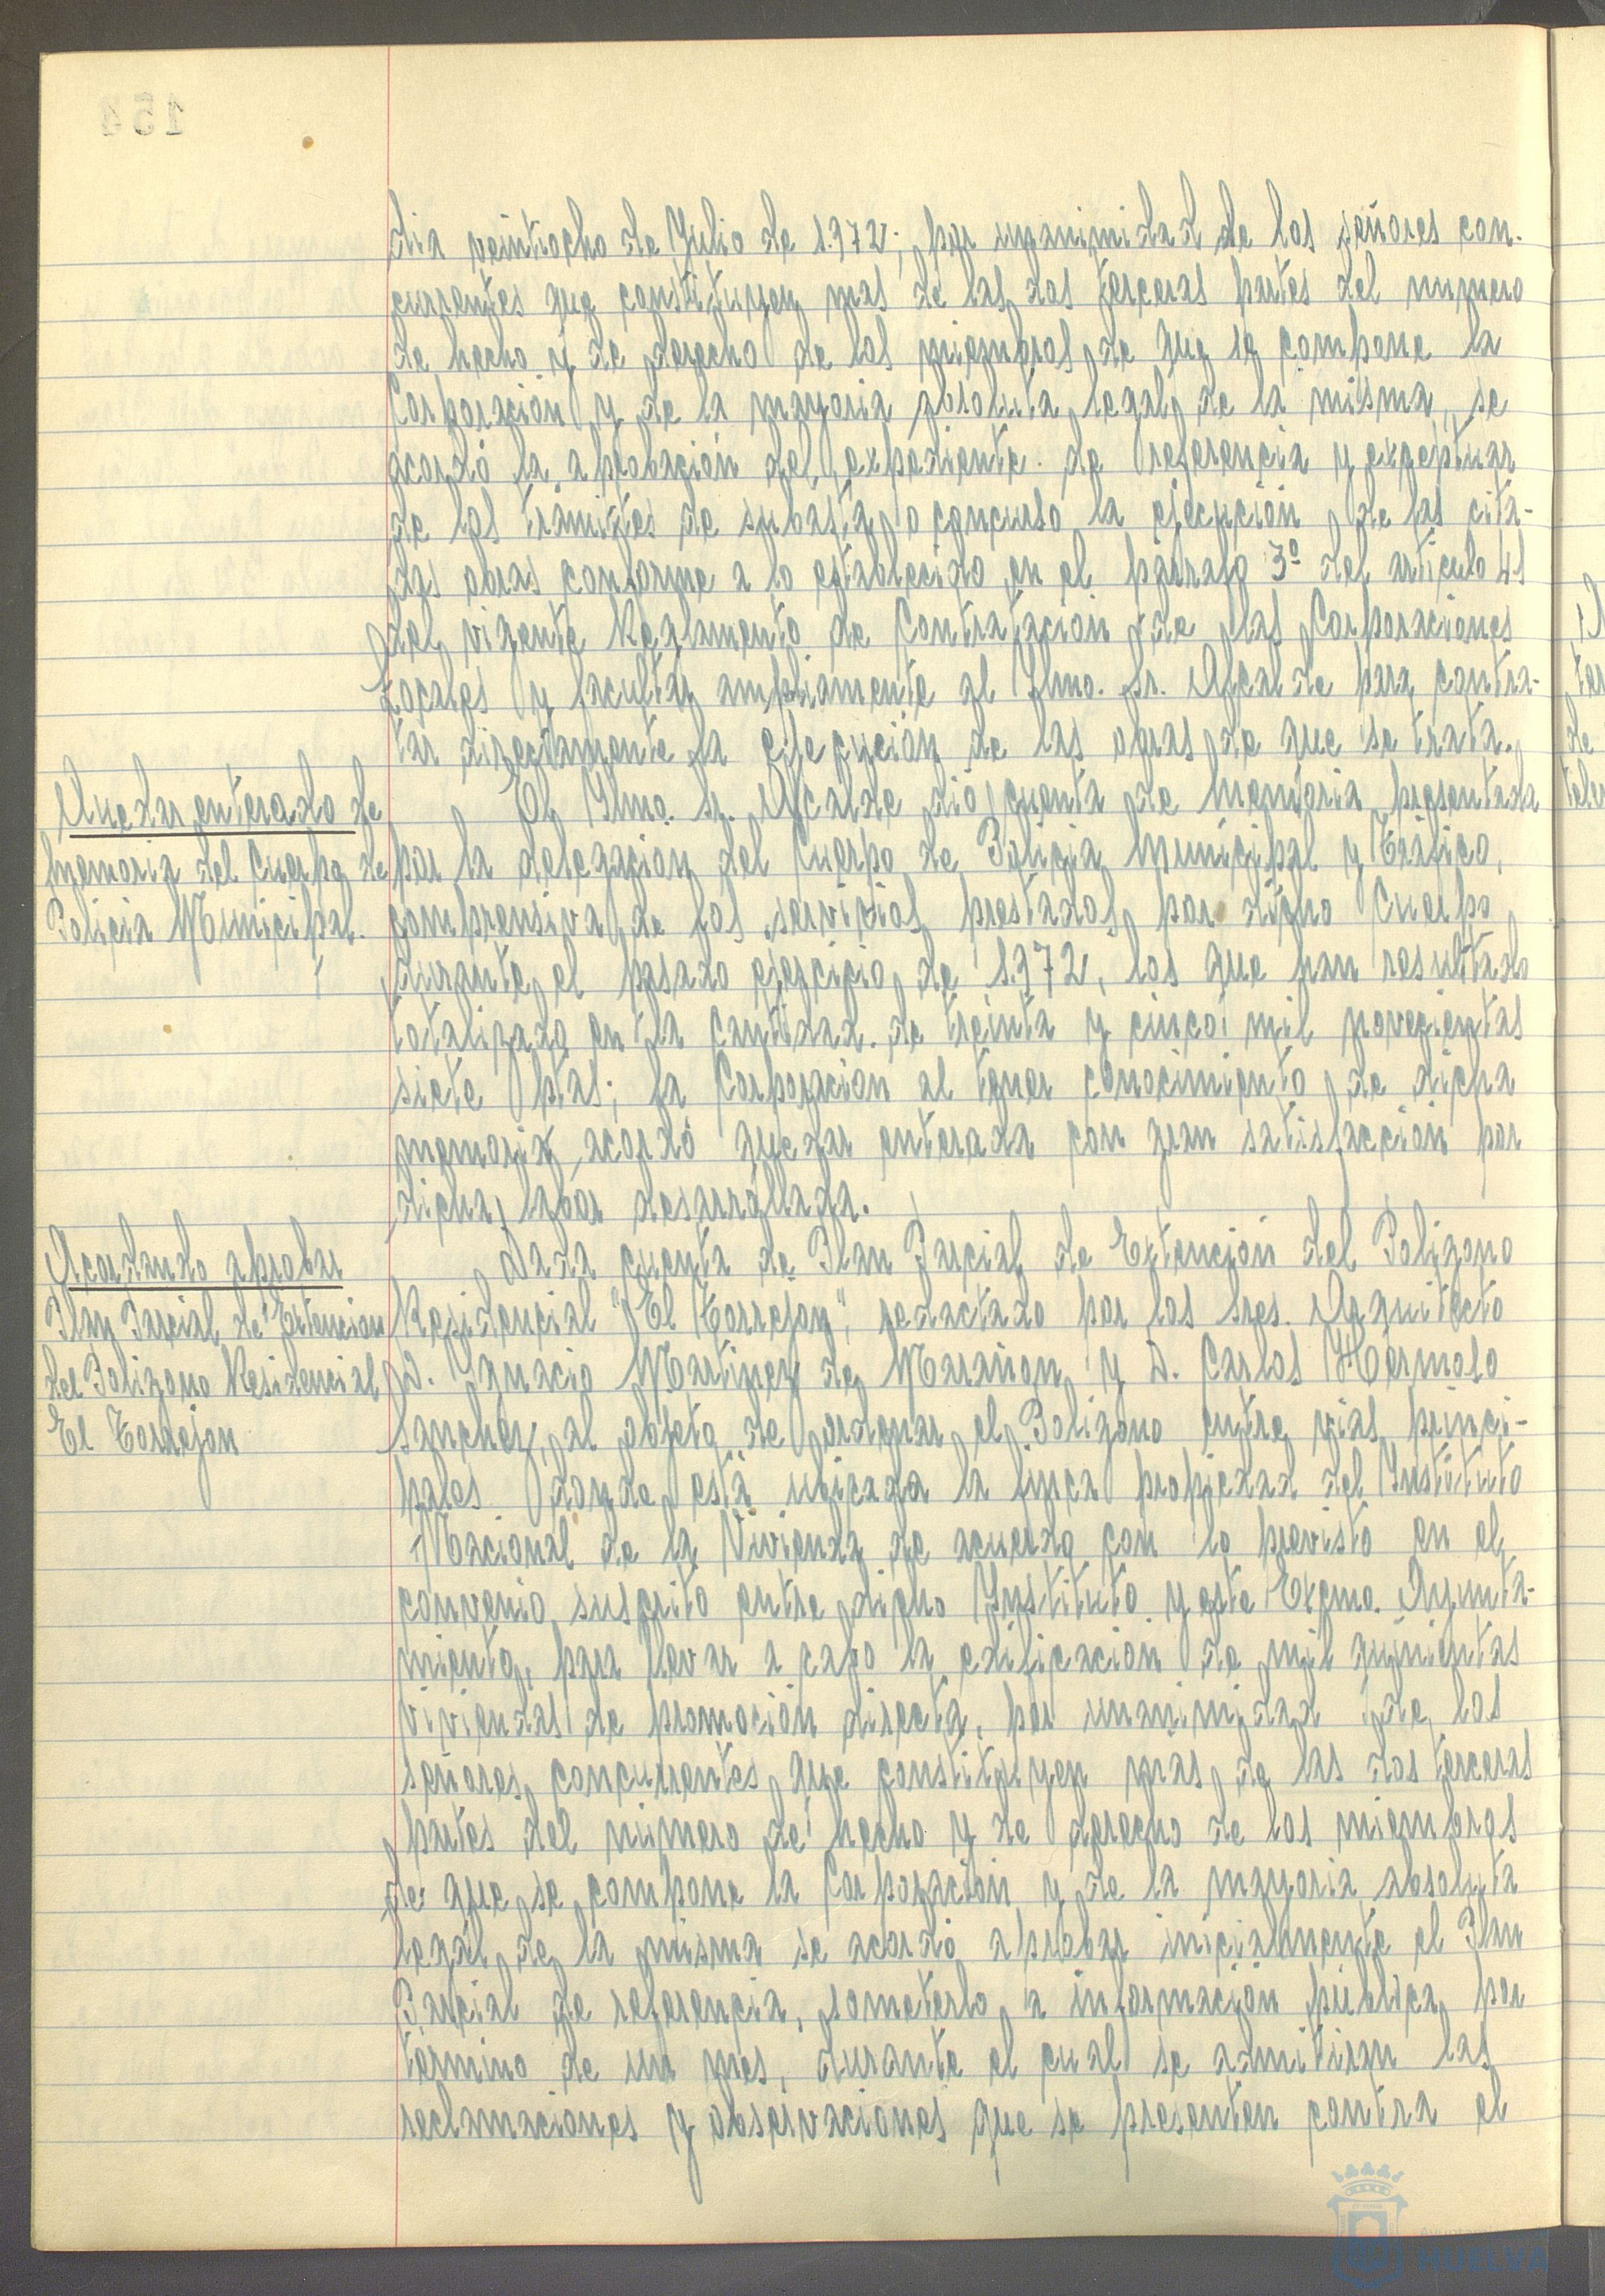 dia veintiocho de Julio de 1.972; por unanimidad de los señores con-
currentes que constituyen mas de las dos terceras partes del numero
de hecho y de derecho de los miembros de que se compone la
Corporación y de la mayoria absoluta legal de la misma, se
acordó la aprobación del expediente de referencia y exceptuar
de los trámites de subasta o concurso la ejecución de las cita-
das obras conforme a lo establecido en el párrafo 3º del artículo 41
del vigente Reglamento de Contratación de las Corporaciones
Locales y facultar ampliamente al Ilmo. Sr. Alcalde para contra-
tar directamente la ejecución de las obras de que se trata.
Quedar enterado de
memoria del Cuerpo de
Policia Municipal.
El Ilmo. Sr. Alcalde dió cuenta de memoria presentada
por la delegación del Cuerpo de Policia Municipal y Tráfico,
comprensiva de los servicios prestados por dicho Cuerpo
durante el pasado ejercicio de 1.972, los que han resultado
totalizado en la cantidad de treinta y cinco mil novecientas
siete ptas; la Corporación al tener conocimiento de dicha
memoria acordó quedar enterada con gran satisfacción por
dicha labor desarrollada.
Acordando aprobar
Plan Parcial de Extencion
del Poligono Residencial
El Torrejon
Dada cuenta de Plan Parcial de Extención del Poligono
Residencial "El Torrejon", redactado por los Sres. Arquitecto
D. Ignacio Martinez de Marañon y D. Carlos Hermoso
Sanchez, al objeto de ordenar el Poligono entre vias princi-
pales donde está ubicada la finca propiedad del Instituto
Nacional de la Vivienda de acuerdo con lo previsto en el
convenio suscrito entre dicho Instituto y este Excmo. Ayunta-
miento, para llevar a cabo la edificación de mil quinientas
viviendas de promoción directa, por unanimidad de los
señores concurrentes que constituyen más de las dos terceras
partes del número de hecho y de derecho de los miembros
de que se compone la Corporación y de la mayoria absoluta
legal de la misma se acordó aprobar inicialmente el Plan
Parcial de referencia, someterlo a información pública por
termino de un mes, durante el cual se admitiran las
reclamaciones y observaciones que se presenten contra el
HUELVA